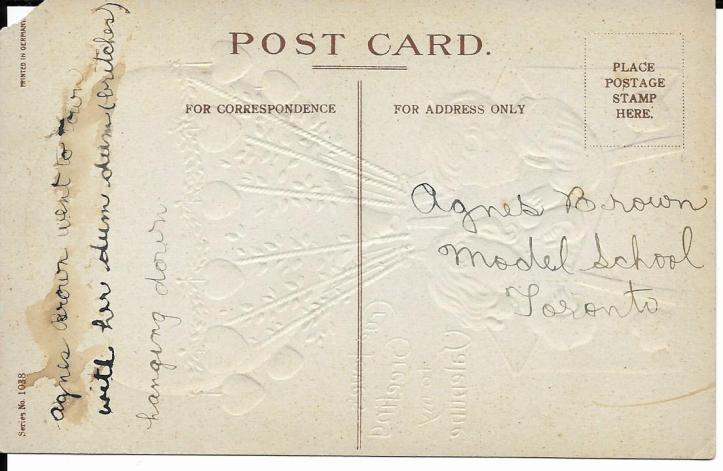 POST CARD.
PRINTED IN GERMANY
FOR CORRESPONDENCE
FOR ADDRESS ONLY
PLACE
POSTAGE
STAMP
HERE.
agnes Brown went to town
with her dum dum (britches)
hanging down
Agnes Brown
Model School
Toronto
Series No. 1038